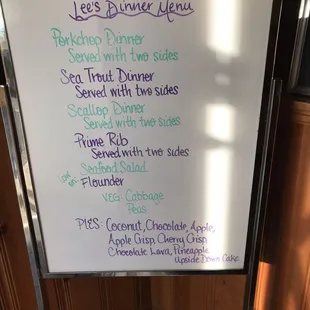 Lee's Dinner Menu
Porkchop Dinner
Served with two sides
Sea Trout Dinner
Served with two sides
Scallop Dinner
Served with two sides
Prime Rib
Served with two sides
Seafood Salad
Flounder
VEG Cabbage
Peas
PIES Coconut, Chocolate, Apple,
Apple Crisp, Cherry Crisp,
Chocolate Lava, Pineapple
Upside Down Cake